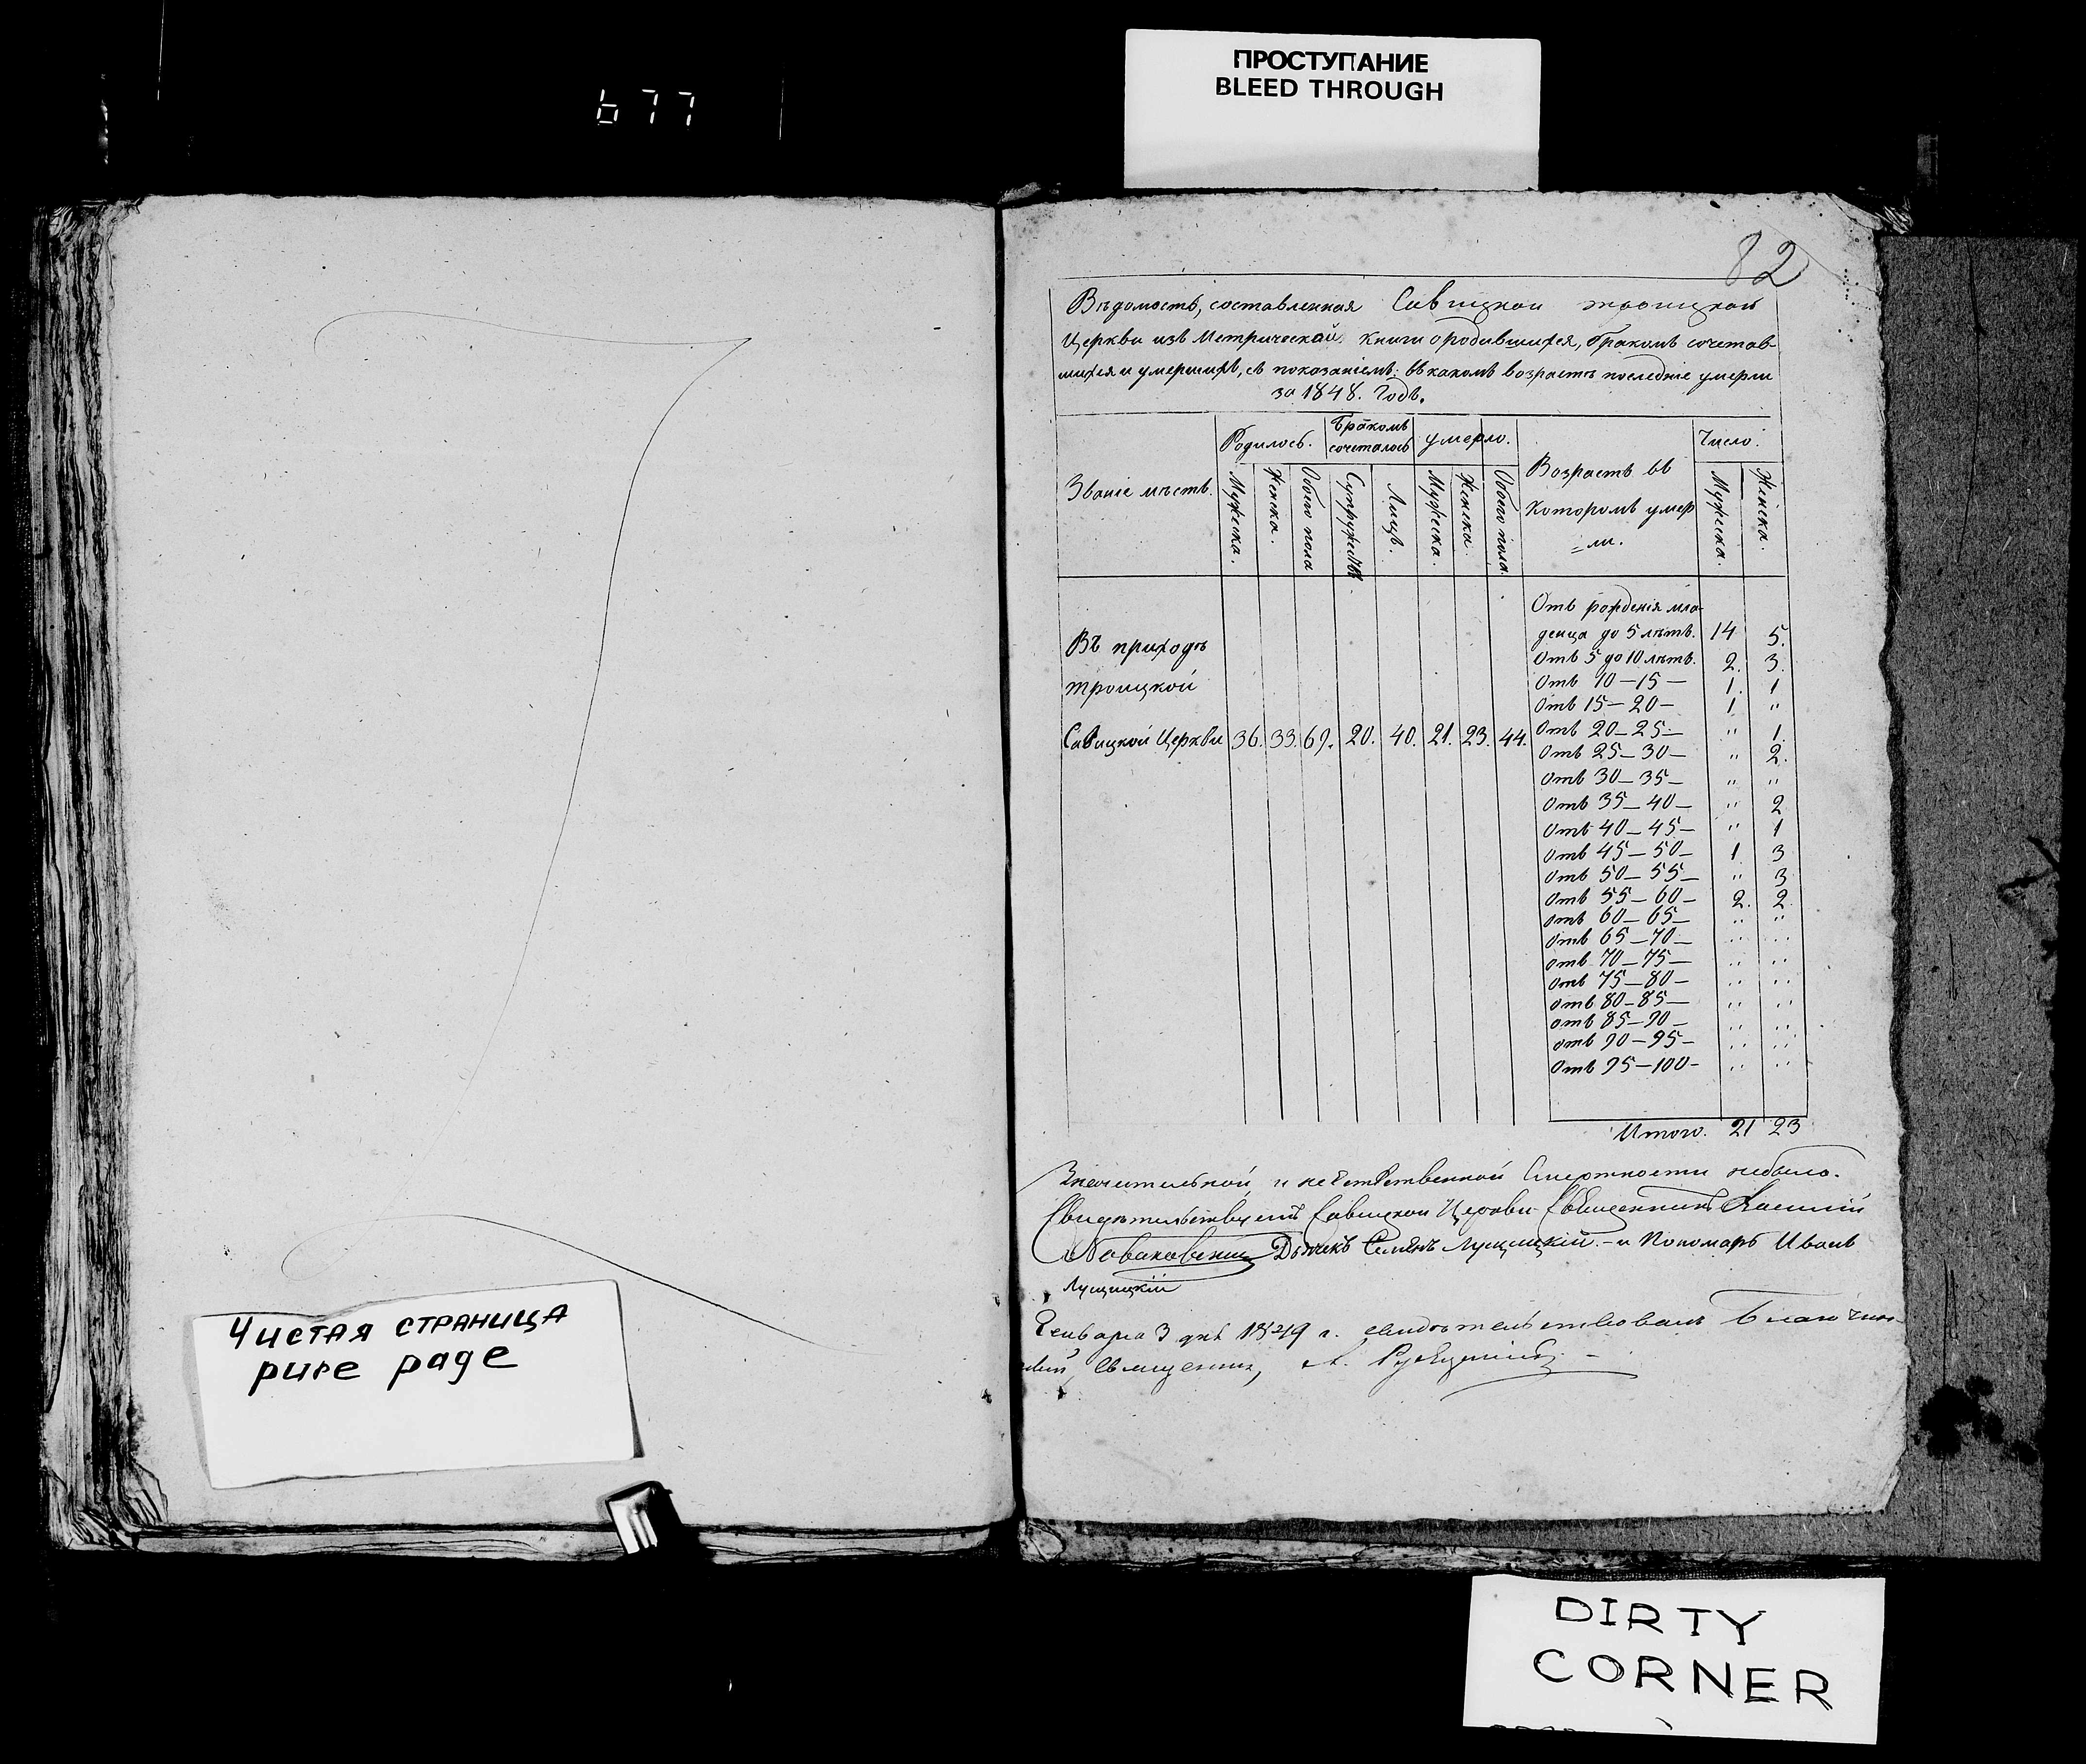 677
ПРОСТУПАНИЕ
BLEED THROUGH
Чистая страница
pure page
82
Вѣдомость, составленная Савицкой Троицкой
Церкви изъ Метрической книги о родившихся, бракомъ сочетав-
шихся и умершихъ, съ показаніемъ: въ какомъ возрастѣ последніе умерли
за 1848. Годъ.
Званіе мѣстъ. Родилось. Бракомъ сочеталось умерло. Возрастъ въ Которомъ умер=ли. Число.
Мужеска. Женска. Обоего пола Супружествъ Лицъ. Мужеска. Женска. Обоего пола. Мужеска. Женска.
Въ приходѣ
Троицкой
Савицкой Церкви 36. 33. 69. 20. 40. 21. 23. 44.
Отъ рожденія мла-
денца до 5 лѣтъ. 14 5.
Отъ 5 до 10 лѣтъ. 2. 3.
Отъ 10—15— 1. 1
Отъ 15—20— 1 "
Отъ 20—25— " 1.
Отъ 25—30— " 2.
Отъ 30—35— " "
Отъ 35—40— " 2
Отъ 40—45— " 1
Отъ 45—50— 1 3
Отъ 50—55— " 3
Отъ 55—60— 2. 2
Отъ 60—65— " "
Отъ 65—70— " "
Отъ 70—75— " "
Отъ 75—80— " "
Отъ 80—85— " "
Отъ 85—90— " "
Отъ 90—95— " "
Отъ 95—100— " "
Итого. 21 23
Значительной и неестественной Смертности небыло.
Свидѣтельствуемъ Савицкой Церкви Священникъ
Дьячекъ Семенъ Лущицкій. — и Пономарь Иванъ
Лущицкій
Генваря 3 дня 1849 г. свидѣтельствовалъ Благочин-
ный Священникъ
DIRTY
CORNER